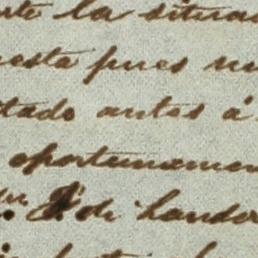 rte la situa
uesta pues
tado antes á
oportunamen
de Lander